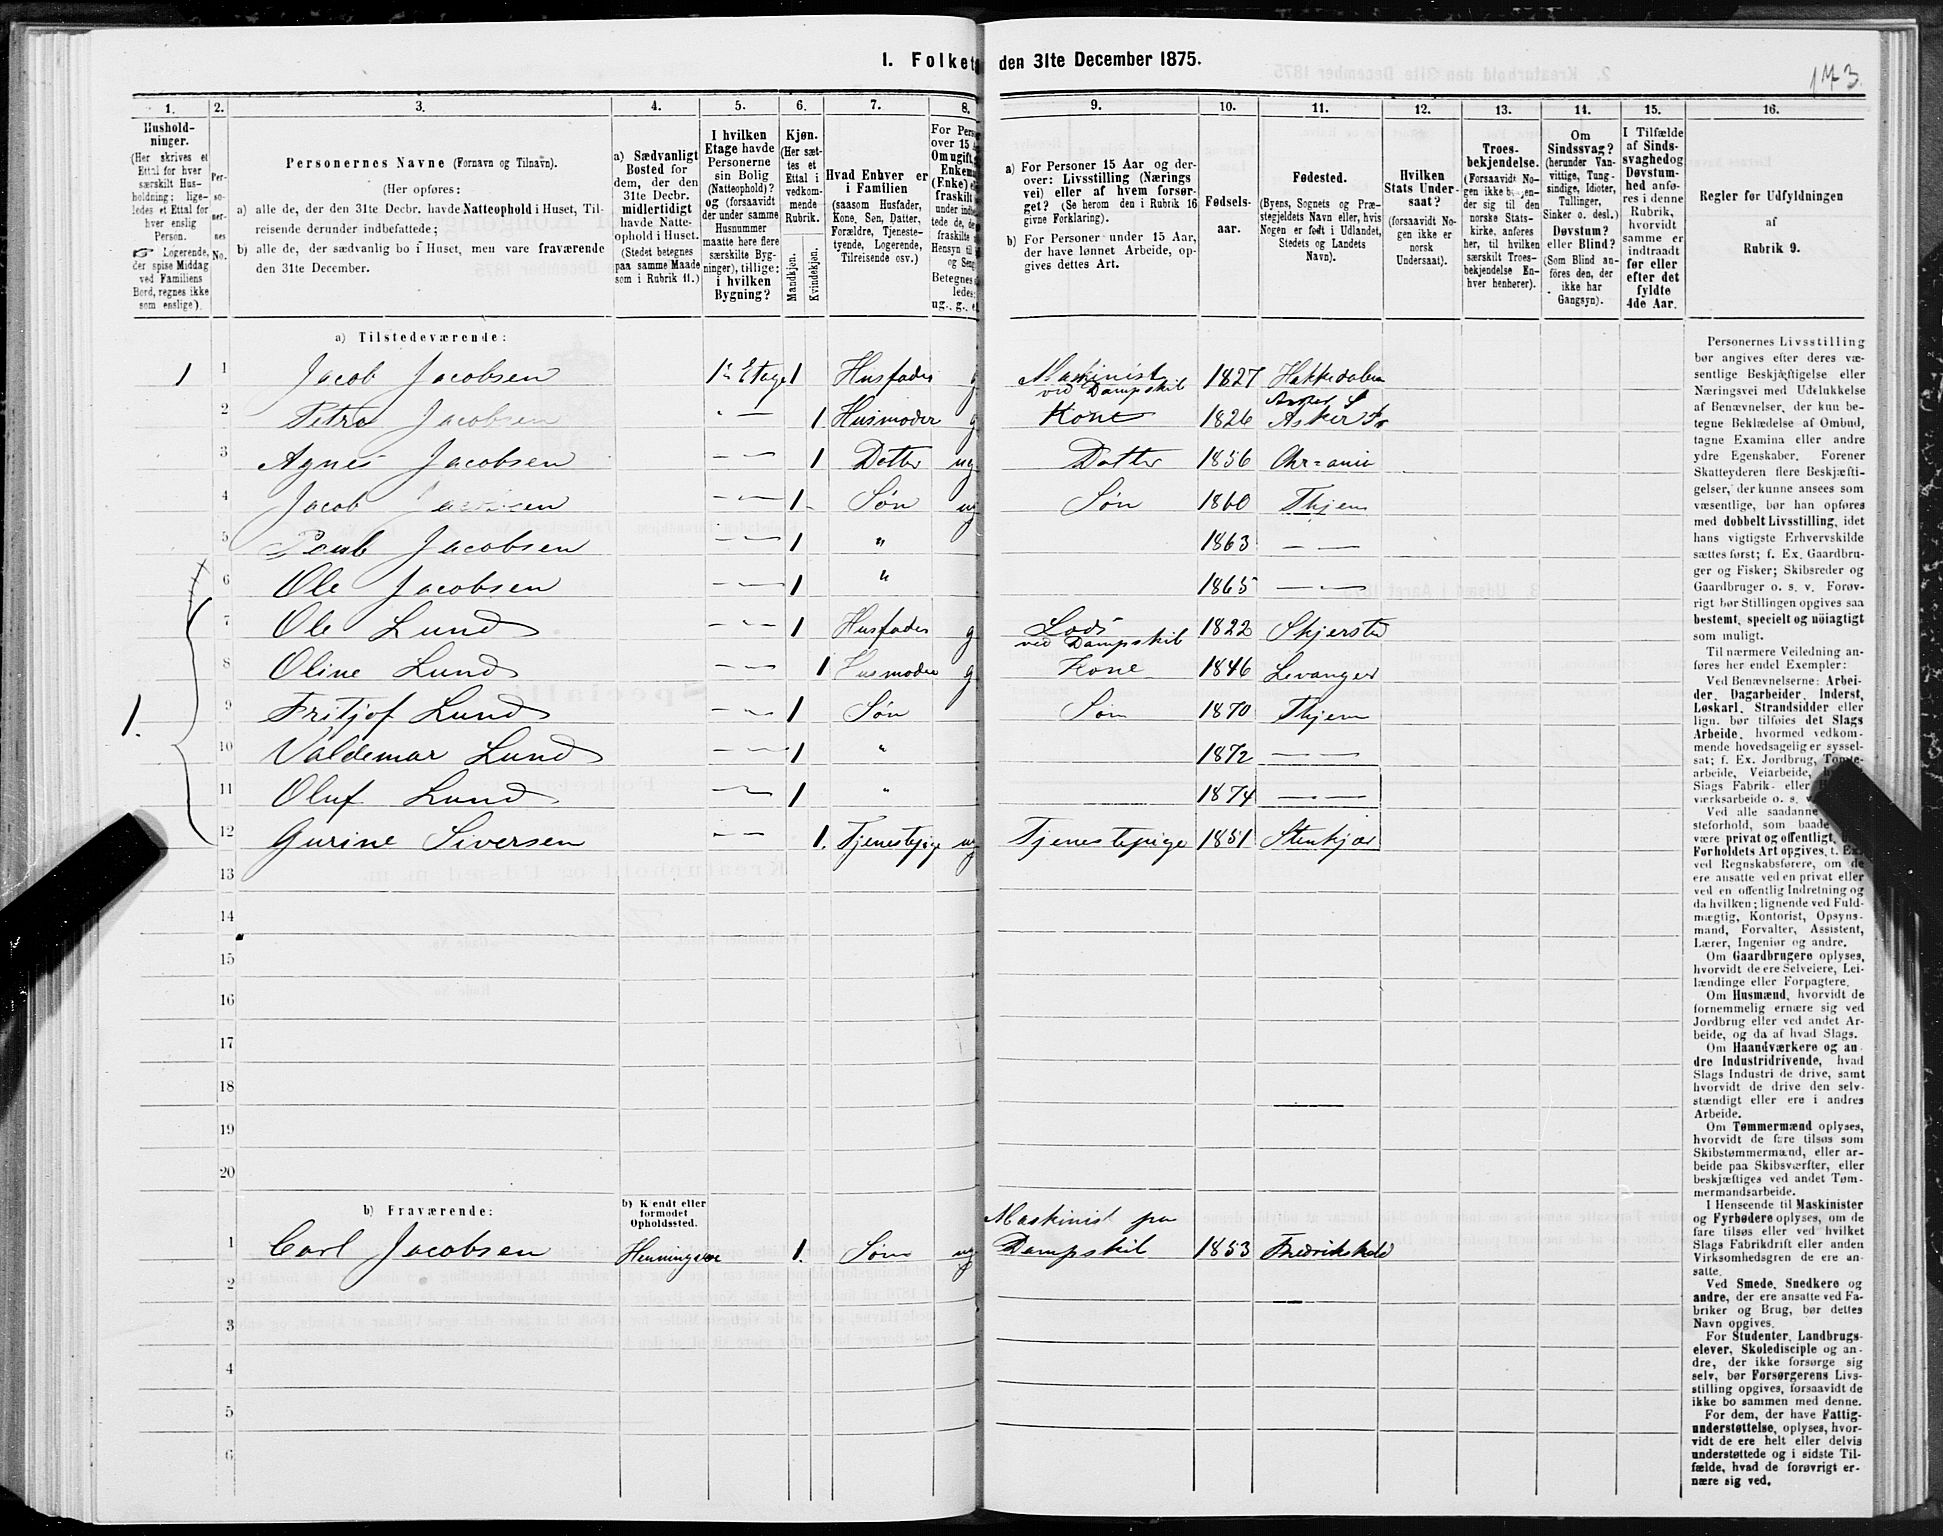 1. Folket den 31te December 1875.
173
1. 2. 3. 4. 5. 6. 7. 8. 9. 10. 11. 12. 13. 14. 15. 16.
Hushold-
ninger.
(Her skrives et
Ettal for hver
særskilt Hus-
holdning; lige-
ledes et Ettal for
hver enslig
Person.
☞ Logerende,
der spise Middag
ved Familiens
Bord, regnes ikke
som enslige).
Per-
so-
ner-
nes
No.
Personernes Navne (Fornavn og Tilnavn).
(Her opføres:
a) alle de, der den 31te Decbr. havde Natteophold i Huset, Til-
reisende derunder indbefattede;
b) alle de, der sædvanlig bo i Huset, men vare fraværende
den 31te December.
a) Sædvanligt
Bosted for
dem, der den
31te Decbr.
midlertidigt
havde Natte-
ophold i Huset.
(Stedet betegnes
paa samme Maade
som i Rubrik 11.)
I hvilken
Etage havde
Personerne
sin Bolig
(Natteophold)?
og (forsaavidt
der under samme
Husnummer
maatte høre flere
særskilte Byg-
ninger), tillige:
i hvilken
Bygning?
Kjøn.
(Her sæt-
tes et
Ettal i
vedkom-
mende
Rubrik.
Mandkjøn.
Kvindekjøn.
Hvad Enhver er
i Familien
(saasom Husfader,
Kone, Søn, Datter,
Forældre, Tjeneste-
tyende, Logerende,
Tilreisende osv.)
For Pers
over 15 A
Omugift,
Enkem
(Enke) e
fraskilt
under indbe
tede de, de
fraskilte
Hensyn til
og Seng
Betegnes
ledes:
ug., g., e
a) For Personer 15 Aar og der-
over: Livsstilling (Nærings
vei) eller af hvem forsør-
get? (Se herom den i Rubrik 16
givne Forklaring).
b) For Personer under 15 Aar,
der have lønnet Arbeide, op-
gives dettes Art.
Fødsels-
aar.
Fødested.
(Byens, Sognets og Præ-
stegjeldets Navn eller, hvis
Nogen er født i Udlandet,
Stedets og Landets
Navn).
Hvilken
Stats Under-
saat?
(forsaavidt No-
gen ikke er
norsk
Undersaat).
Troes-
bekjendelse.
(Forsaavidt No-
gen ikke bekjen-
der sig til den
norske Stats-
kirke, anføres
her, til hvilken
særskilt Troes-
bekjendelse En-
hver henhører).
Om
Sindssvag?
(herunder Van-
vittige, Tung-
sindige, Idioter,
Tullinger,
Sinker o. desl.)
Døvstum?
eller Blind?
(Som Blind an-
føres den, der
ikke har
Gangsyn).
I Tilfælde
af Sinds-
svaghedog
Døvstum-
hed anfø-
res i denne
Rubrik,
hvorvidt
samme er
indtraadt
før eller
efter det
fyldte
4de Aar.
Regler for Udfyldningen
af
Rubrik 9.
a) Tilstedeværende:
1 1 Jacob Jacobsen 1ste Etage 1 Husfader g Maskinist ved Dampskib 1827 Hakkedalen
2 Petra Jacobsen " — 1 Husmoder g Kone 1826 Asker
3 Agnes Jacobsen — " — 1 Datter ug Datter 1856 Chr=ania
4 Jacob Jacobsen — " — 1 Søn ug Søn 1860 Thjem
5 Paul Jacobsen — " — 1 " 1863 — —
6 Ole Jacobsen — " — 1 " 1865 — —
7 Ole Lund — " — 1 Husfader g Lods ved Dampskib 1822 Skjerstad
8 Oline Lund — " — 1 Husmoder g Kone 1846 Levanger
1. 9 Fritjof Lund — " — 1 Søn Søn 1870 Thjem
10 Valdemar Lund — " — 1 " 1872 — —
11 Oluf Lund — " — 1 " 1874 — —
12 Gurine Siversen — " — 1. Tjenestepige ug Tjenestepige 1851 Stenkjær
13
14
15
16
17
18
19
20
b) Fraværende:
b) Kjendt eller
formodet
Opholdssted.
1 Carl Jacobsen Henningsvær 1. Søn ug Maskinist paa Dampskib 1853 Fredrikshald
2
3
4
5
6
Personernes Livsstilling
bør angives efter deres væ-
sentlige Beskjæftigelse eller
Næringsvei med Udelukkelse
af Benævnelser, der kun be-
tegne Beklædelse af Ombud,
tagne Examina eller andre
ydre Egenskaber. Forener
Skatteyderen flere Beskjæfti-
gelser, der kunne ansees som
væsentlige, bør han opføres
med dobbelt Livsstilling, idet
hans vigtigste Erhvervskilde
sættes først; f. Ex. Gaardbru-
ger og Fisker; Skibsreder og
Gaardbruger o. s. v. Forøv-
rigt bør Stillingen opgives saa
bestemt, specielt og nøiagtigt
som muligt.
Til nærmere Veiledning an-
føres her endel Exempler:
Ved Benævnelserne: Arbei-
der, Dagarbeider, Inderst,
Løskarl, Strandsidder eller
lign. bør tilføies det Slags
Arbeide, hvormed vedkom-
mende hovedsagelig er syssel-
sat; f. Ex. Jordbrug, Tømte-
arbeide, Veiarbeide,
Slags Fabrik- eller
værksarbeide o. s. v.
Ved alle saadanne
steforhold, som baade
være privat og offentligt,
Forholdets Art opgives, t. Ex.
ved Regnskabsførere, om de
ere ansatte ved en privat eller
ved en offentlig Indretning og
da hvilken; lignende ved Fuld-
mægtig, Kontorist, Opsyns-
mand, Forvalter, Assistent,
Lærer, Ingeniør og andre.
Om Gaardbrugere oplyses,
hvorvidt de ere Selveiere, Lei-
lændinge eller Forpagtere.
Om Husmænd, hvorvidt de
fornemmelig ernære sig ved
Jordbrug eller ved andet Ar-
beide, og da af hvad Slags.
Om Haandværkere og an-
dre Industridrivende, hvad
Slags Industri de drive, samt
hvorvidt de drive den selv-
stændigt eller ere i andres
Arbeide.
Om Tømmermænd oplyses,
hvorvidt de fare tilsøs som
Skibstømmermænd, eller ar-
beide paa Skibsværfter, eller
beskjæftiges ved andet Tøm-
mermandsarbeide.
I Henseende til Maskinister
og Fyrbødere oplyses, om de
fare tilsøs eller ved hvilket
Slags Fabrikdrift eller anden
Virksomhedsgren de ere an-
satte.
Ved Smede, Snedkere og
andre, der ere ansatte ved Fa-
briker og Brug, bør dettes
Navn opgives.
For Studenter, Landbrugs-
elever, Skoledisciple og an-
dre, der ikke forsørge sig
selv, bør Forsørgerens Livs-
stilling opgives, forsaavidt de
ikke bo sammen med denne.
For dem, der have Fattig-
understøttelse, oplyses, hvor-
vidt de ere helt eller delvis
understøttede og i sidste Til-
fælde, hvad de forøvrigt er-
nære sig ved.